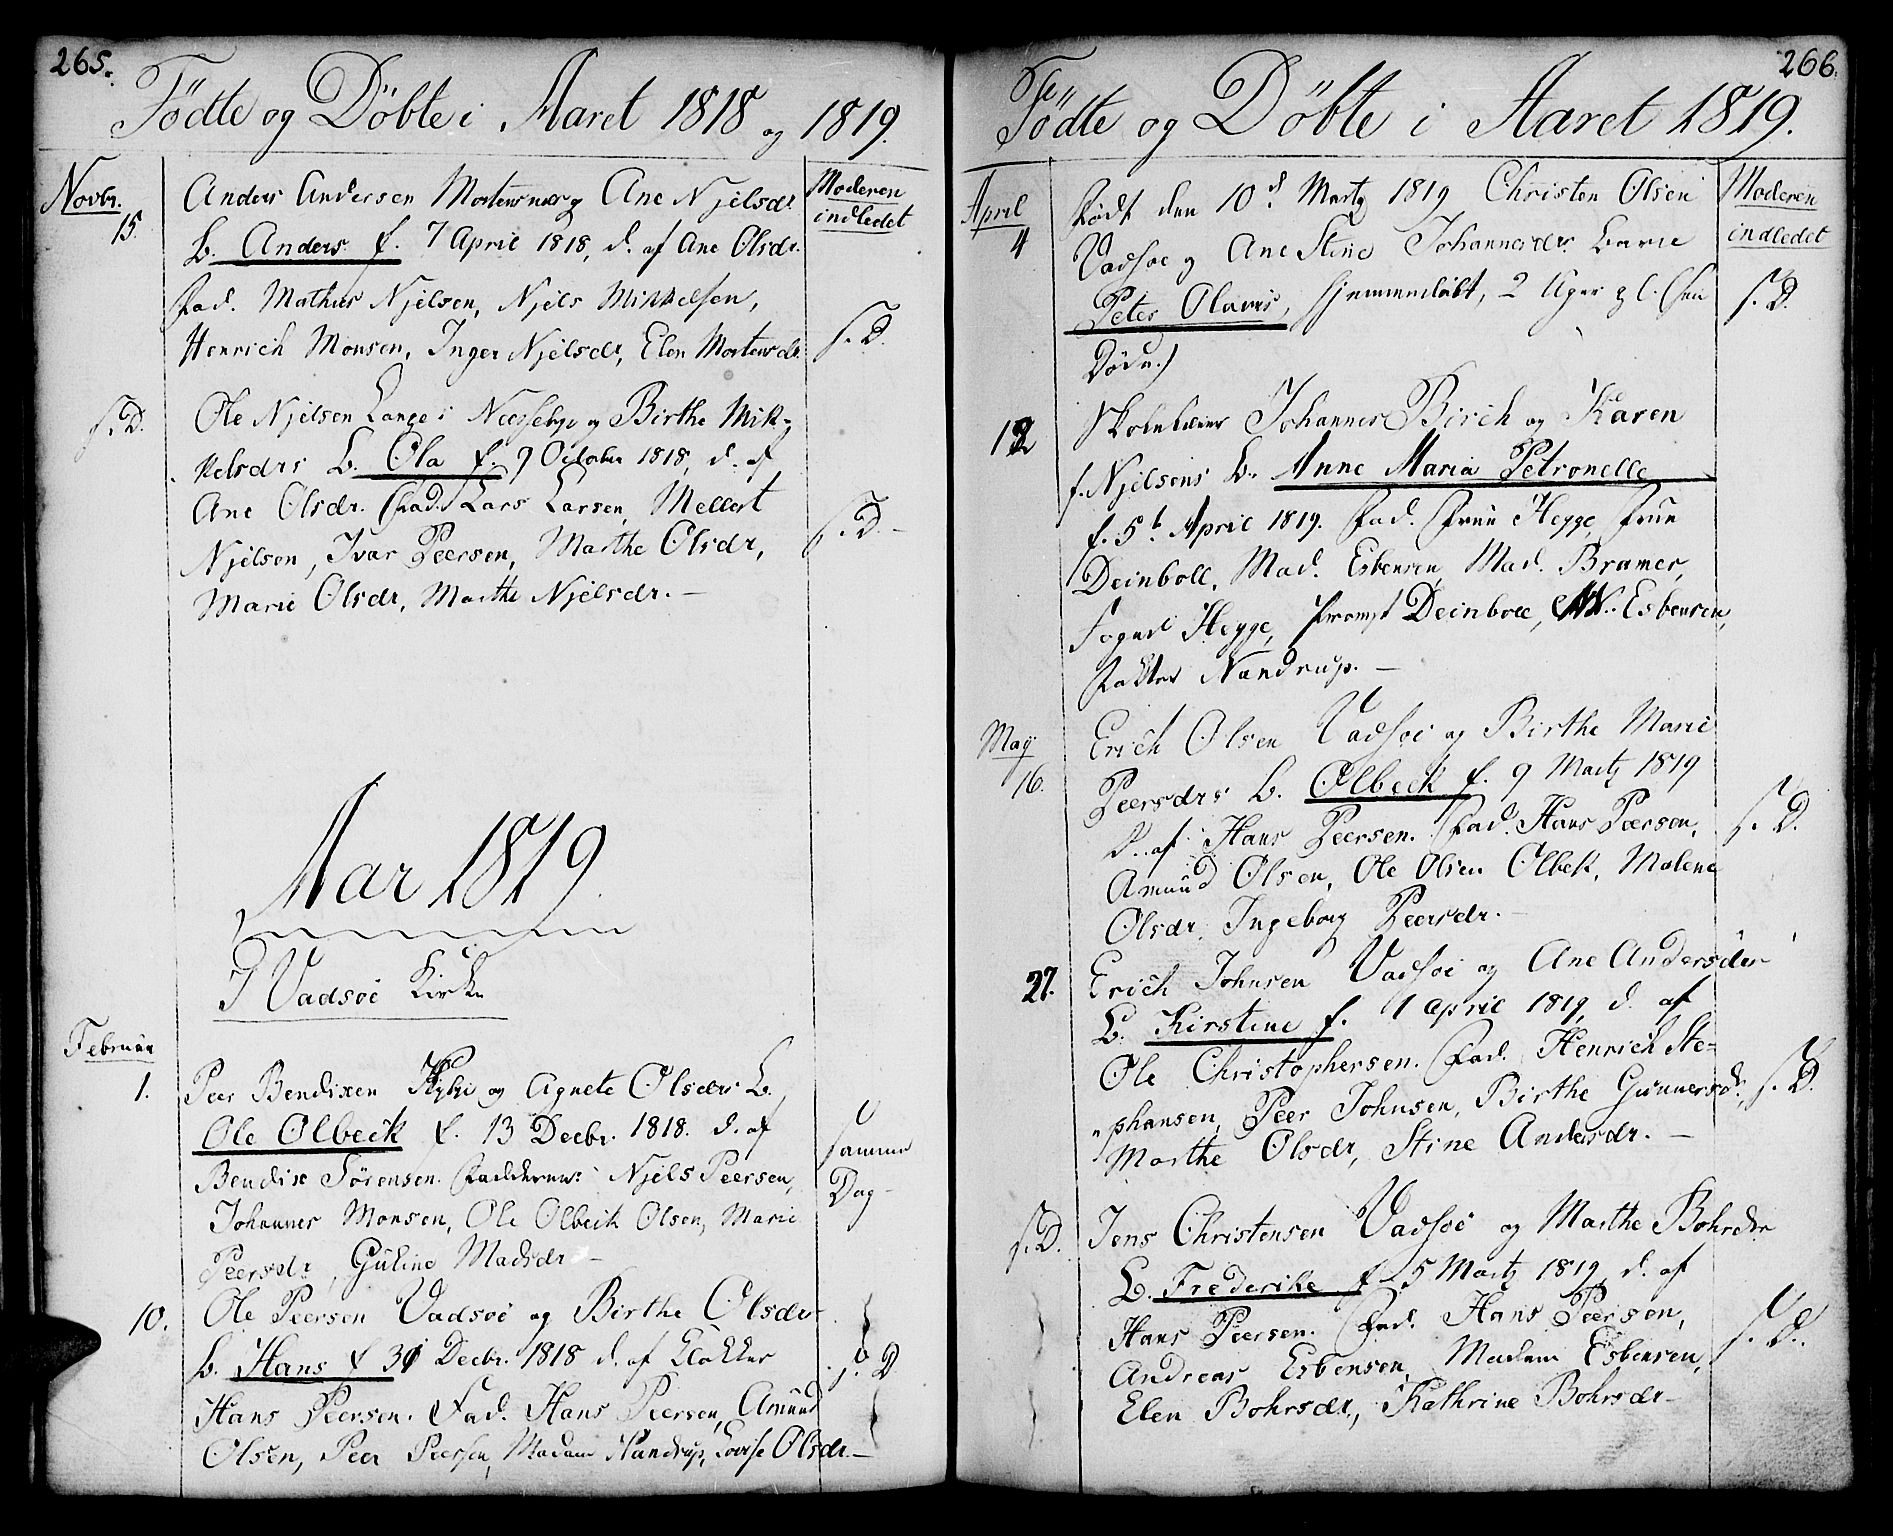 265.
Födte og Döbte i Aaret 1818 og 1819.
Novbr. 15.
Anders Andersen Mortensnæs og Ane Njelsdr.
B. Anders f. 7 April 1818, d. af Ane Olsdr.
Fad. Mathis Njelsen, Njels Mikkelsen,
Henrich Monsen, Inger Njelsdr, Elen Mortensdr.
Moderen
indledet
s. D.
s. D.
Ole Njelsen Lange i Næsseby og Birthe Mik-
kelsdrs B. Ola f. 9 October 1818, d. af
Ane Olsdr. Fad. Lars Larsen, Mellert
Njelsen, Ivar Peersen, Marthe Olsdr,
Marie Olsdr, Marthe Njelsdr. —
s. D. —
Aar 1819.
I Vadsöe Kirke
Februar
1.
Peer Bendixen og Agnete Olsdrs B.
Ole Olbeck f. 13 Decbr. 1818. d. af
Bendix Sörensen. Fadderne: Njels Peersen,
Johannes Monsen, Ole Olbeck Olsen, Marie
Peersdr, Guline Madsdr —
samme
Dag —
10.
Ole Peersen Vadsöe og Birthe Olsdrs
B. Hans f 31 Decbr. 1818 d. af Klokker
Hans Peersen. Fad. Hans Peersen, Amund
Olsen, Peer Peersen, Madam Nandrup, Lovise Olsdr. —
s. D
266.
Födte og Döbte i Aaret 1819.
April
4
Födt den 10d Martz 1819 Christen Olsen
Vadsöe og Ane Stine Johannesdrs Barn
Peter Olaus, hjemmedöbt, 2 Uger gl. (sen
Döde.)
Moderen
indledet
s. D.
12
Skolelærer Johannes Birch og Karen
f. Njelsens B. Anne Maria Petronelle
f. 5t April 1819. Fad. Frue Hegge, Frue
Deinboll, Mad. Esbensen, Mad. Bramer,
Foged Hegge, Provst Deinboll, Esbensen,
Faktor Nandrup. —
May
16.
Erich Olsen Vadsöe og Birthe Marie
Peersdrs B. Olbeck f. 9 Martz 1819
d. af Hans Peersen. Fad. Hans Peersen,
Amund Olsen, Ole Olsen Olbek, Malene
Olsdr, Ingeborg Peersdr. —
s. D.
27.
Erich Johnsen Vadsöe og Ane Andersdr
B. Kirstine f. 1 April 1819, d. af
Ole Christophersen. Fad. Henrich Ste-
phansen, Peer Johnsen, Birthe Gunnersdr,
Marthe Olsdr, Stine Andersdr. —
s. D.
s. D.
Jens Christensen Vadsöe og Marthe Bohrsdr
B. Frederike f. 5 Martz 1819, d. af
Hans Peersen. Fad. Hans Peersen,
Andreas Esbensen, Madam Esbensen,
Elen Bohrsdr, Kathrine Bohrsdr —
s. D.